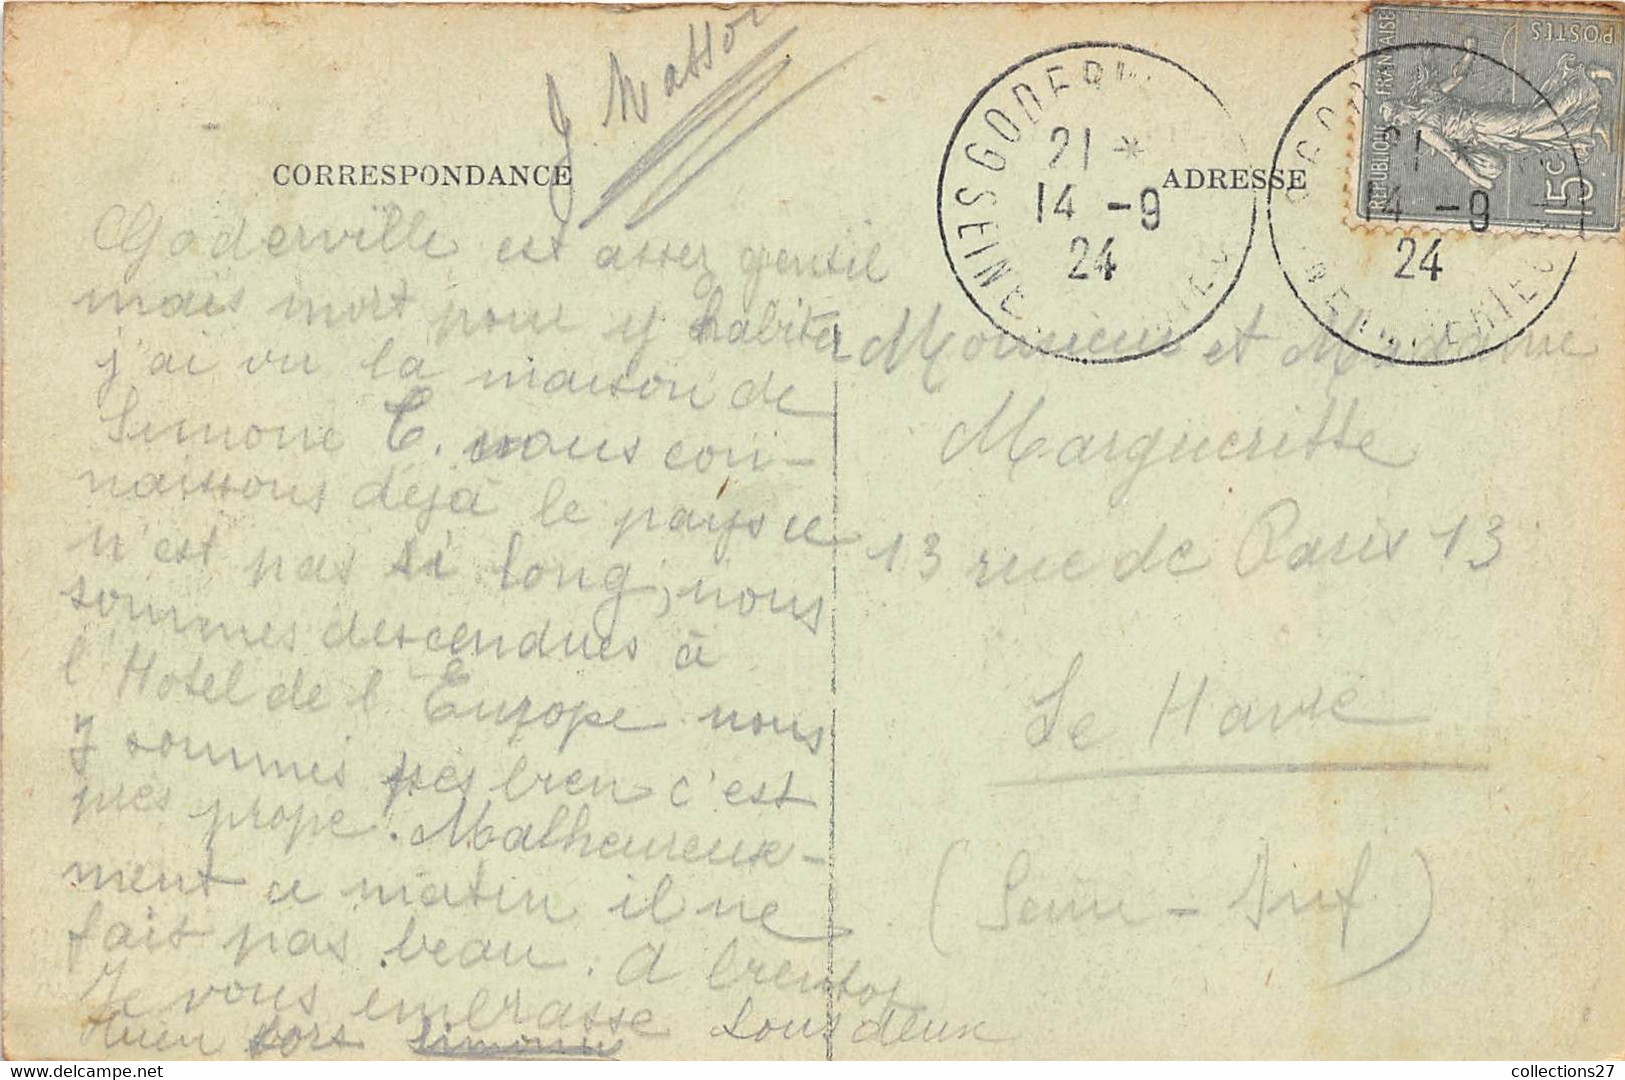 J Masson
CORRESPONDANCE
Goderville est assez gentil
mais mort pour y habiter
j'ai vu la maison de
Simone C. nous con-
naissons déjà le pays ce
n'est pas si long, nous
sommes descendues à
l'Hotel de l'Europe nous
y sommes très bien c'est
très prope. Malheureux-
ment ce matin il ne
fait pas beau. A bientot
Je vous embrasse tous deux
bien fort Simone
GODERV
SEINE INFRE
21 *
14 -9
24
ADRESSE
21 *
14 -9
24
REPUBLIQUE FRANÇAISE
POSTES
15c
Monsieur et Madame
Margueritte
13 rue de Paris 13
Le Havre
(Seine-Inf)
collections27